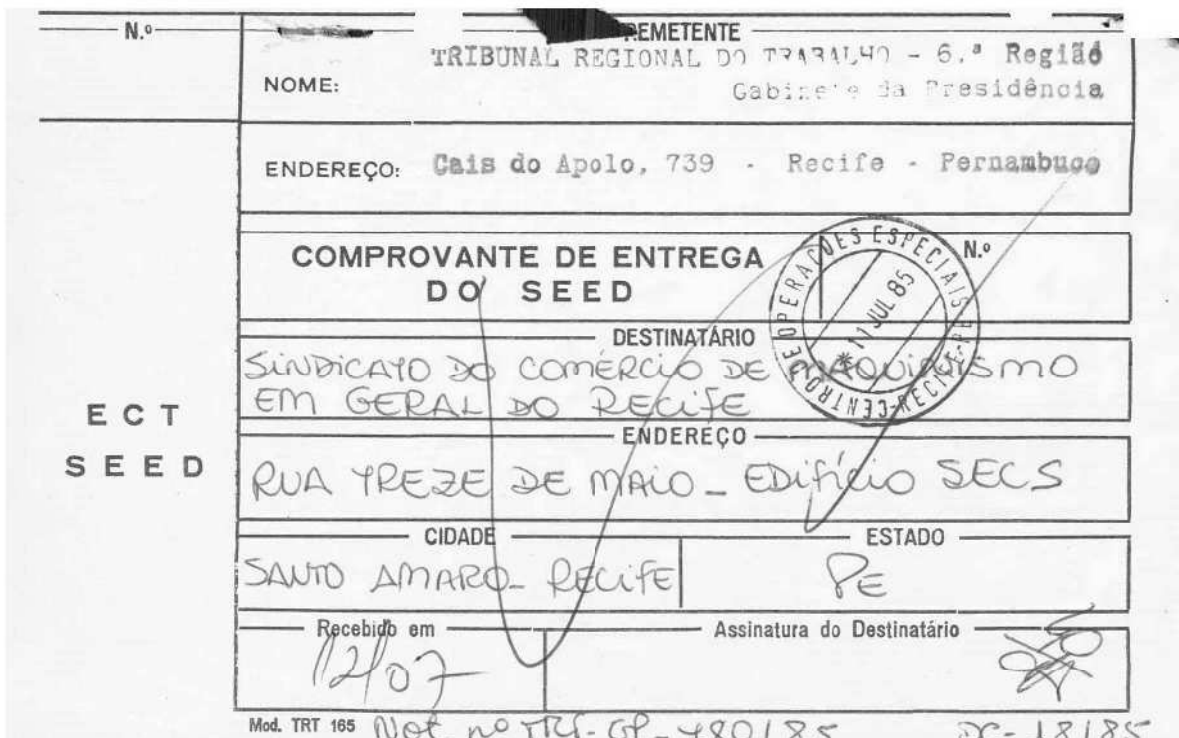 N.º
REMETENTE
TRIBUNAL REGIONAL DO TRABALHO - 6.ª Região
NOME:
Gabinete da Presidência
ENDEREÇO: Cais do Apolo, 739 - Recife - Pernambuco
COMPROVANTE DE ENTREGA
DO SEED
N.º
CENTRO DE OPERAÇÕES ESPECIAIS
RECIFE-PE
* 11 JUL 85
DESTINATÁRIO
SINDICATO DO COMÉRCIO DE MAQUINISMO
EM GERAL DO RECIFE
ECT
SEED
ENDEREÇO
RUA TREZE DE MAIO - EDIFÍCIO SECS
CIDADE
ESTADO
SANTO AMARO - RECIFE
PE
Recebido em
Assinatura do Destinatário
12/07
Mod. TRT 165
Not. nº TRT-GP-480/85
DC-18/85